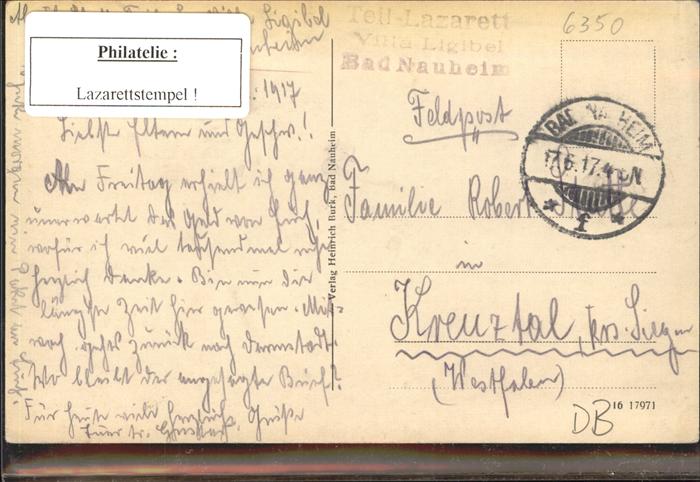 Philatelie :
Lazarettstempel !
Ligibel
1917
Liebste Eltern und Geschw.!
Am Freitag erhielt ich ganz
unerwartet das Geld von Euch,
wofür ich viel tausendmal
herzlich danke. Bin nun die
längste Zeit hier gewesen. Mitt-
woch gehts zurück nach Darmstadt.
Wo bleibt der angesagte Brief?
Für heute viele herzliche Grüße
Euer tr. Gustav
Verlag Heinrich Burk, Bad Nauheim
Teil-Lazarett
Villa Ligibel
Bad Nauheim
6350
Feldpost
BAD NAUHEIM
17.6.17.4-5N
* f *
Familie Robert
in
Kreuztal, Krs. Siegen
(Westfalen)
DB
16 17971